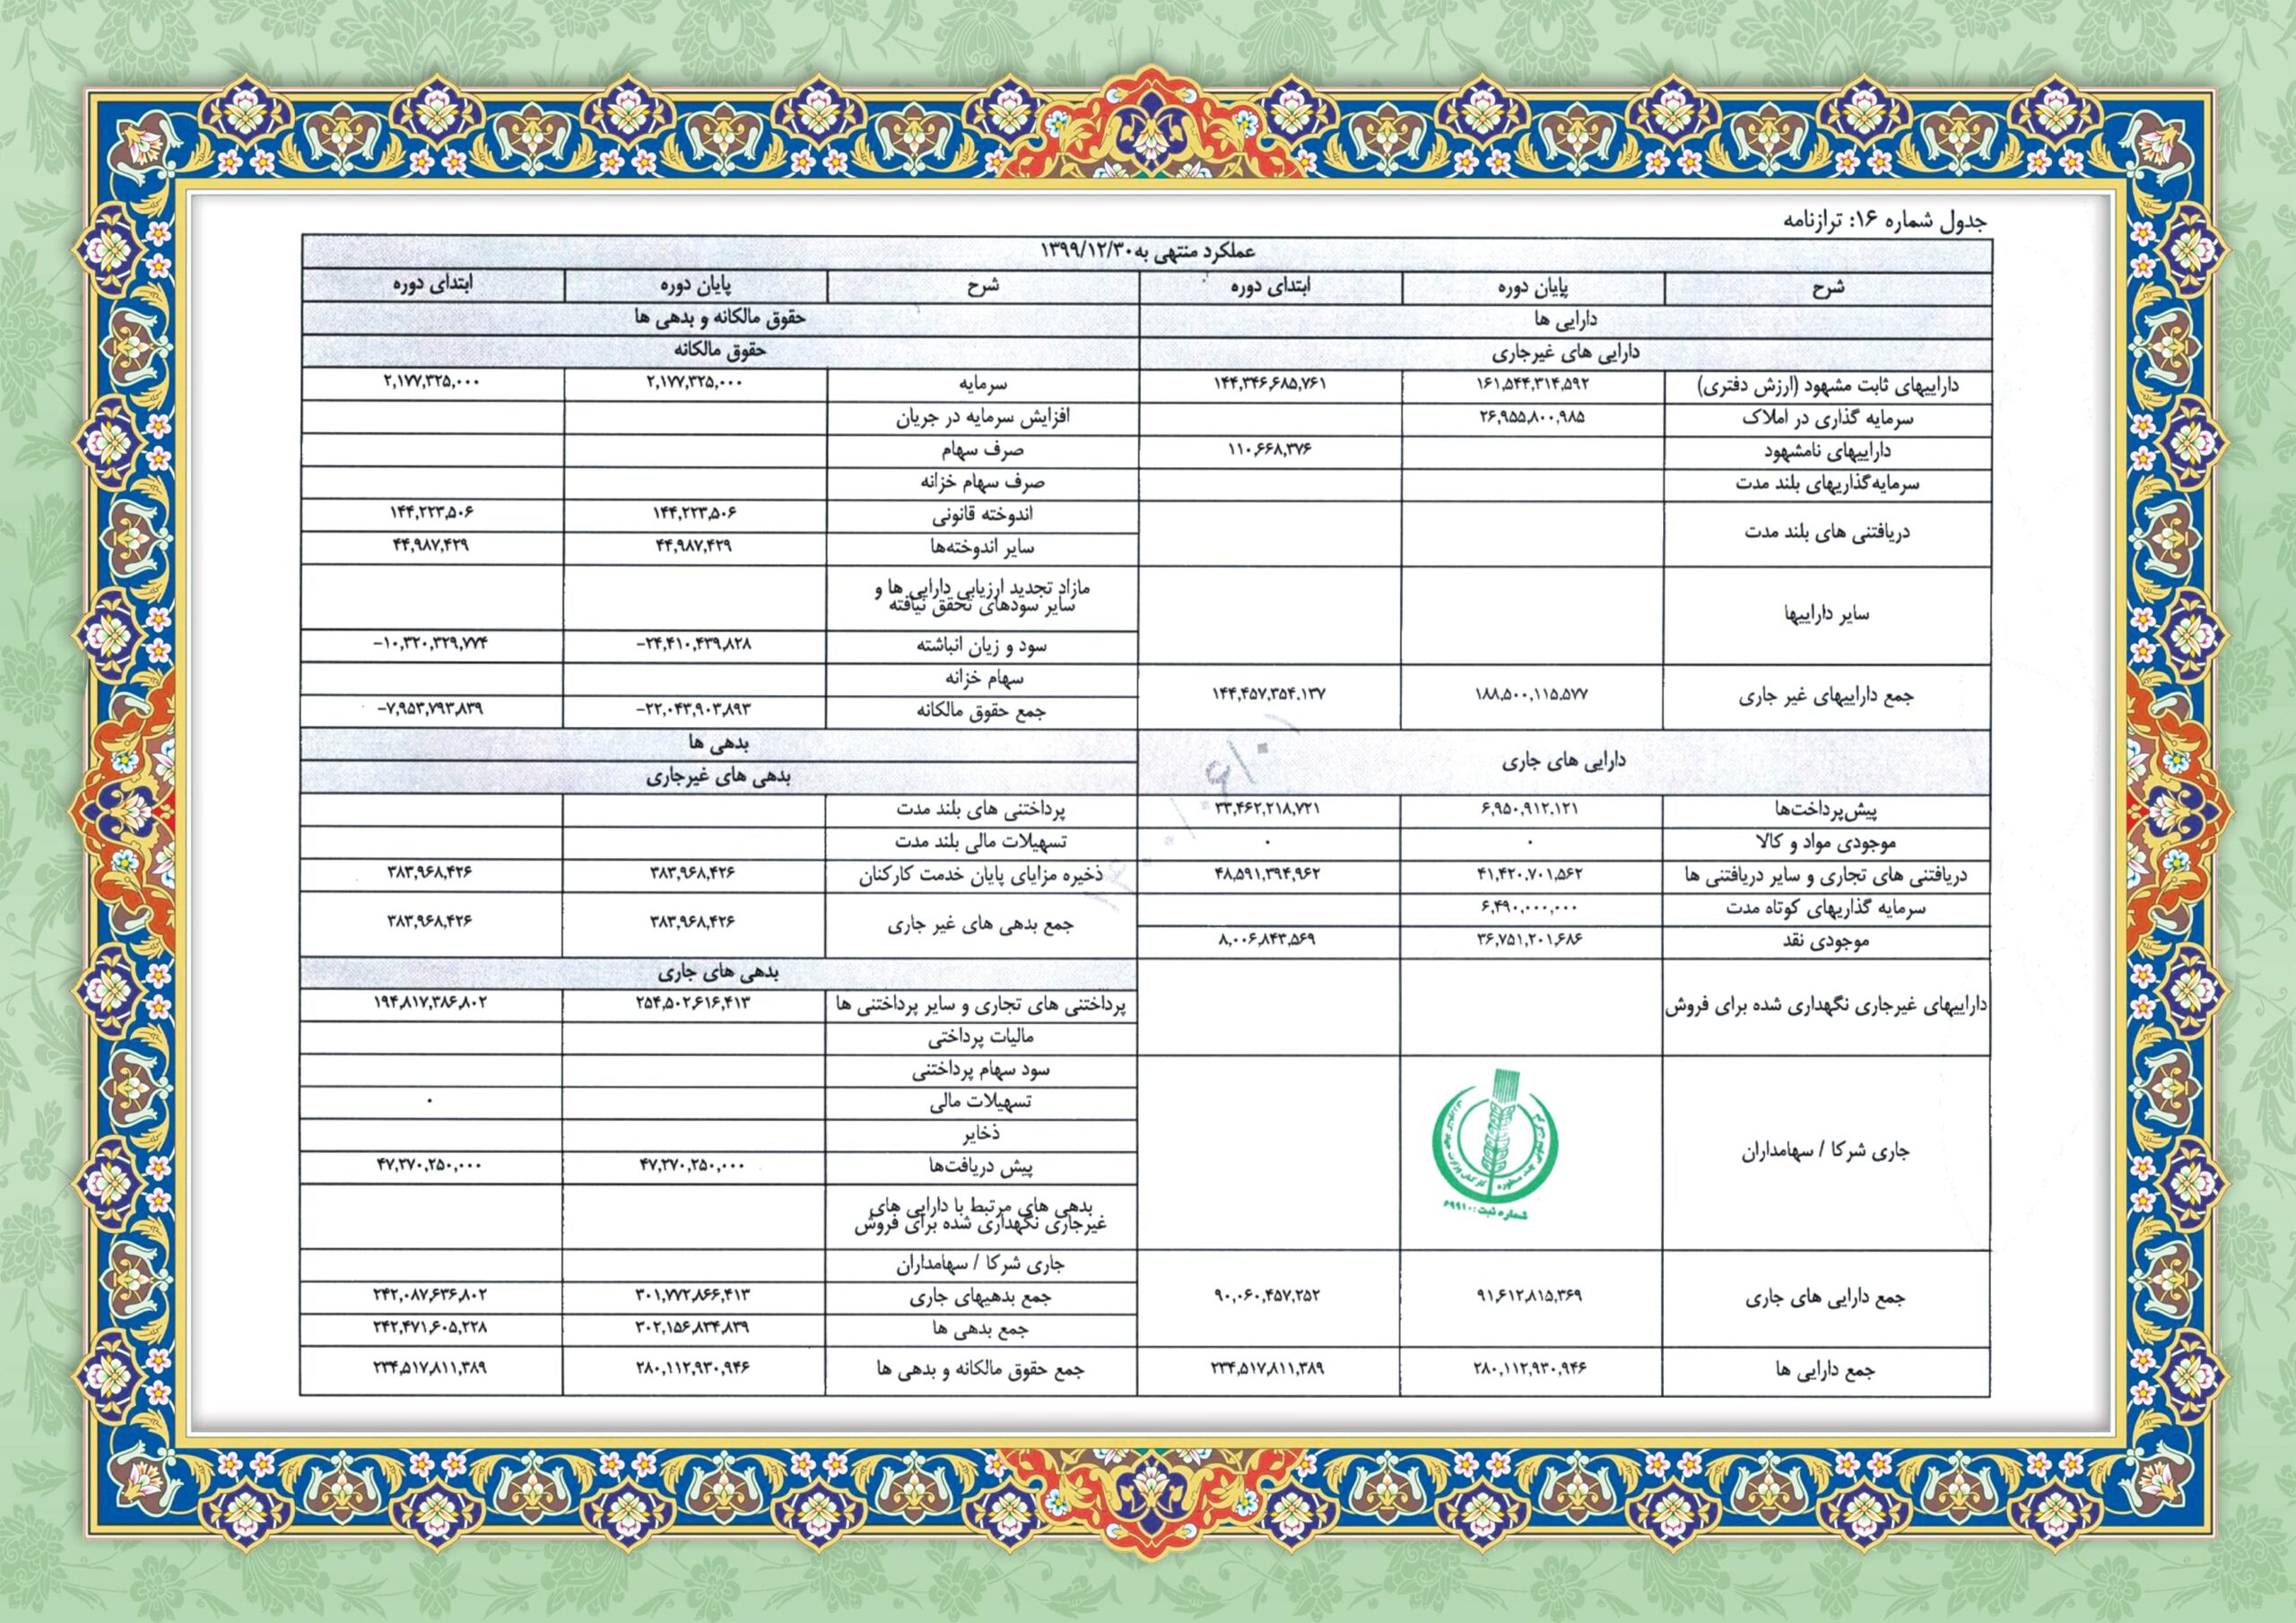 جدول شماره ۱۶: ترازنامه
عملکرد منتهی به ۱۳۹۹/۱۲/۳۰
شرح پایان دوره ابتدای دوره شرح پایان دوره ابتدای دوره
دارایی ها حقوق مالکانه و بدهی ها
دارایی های غیرجاری حقوق مالکانه
داراییهای ثابت مشهود (ارزش دفتری) ۱۶۱,۵۴۴,۳۱۴,۵۹۲ ۱۴۴,۳۴۶,۶۸۵,۷۶۱ سرمایه ۲,۱۷۷,۳۲۵,۰۰۰ ۲,۱۷۷,۳۲۵,۰۰۰
سرمایه گذاری در املاک ۲۶,۹۵۵,۸۰۰,۹۸۵ افزایش سرمایه در جریان
داراییهای نامشهود ۱۱۰,۶۶۸,۳۷۶ صرف سهام
سرمایه‌گذاریهای بلند مدت صرف سهام خزانه
دریافتنی های بلند مدت اندوخته قانونی ۱۴۴,۲۲۳,۵۰۶ ۱۴۴,۲۲۳,۵۰۶
سایر اندوخته‌ها ۴۴,۹۸۷,۴۲۹ ۴۴,۹۸۷,۴۲۹
سایر داراییها مازاد تجدید ارزیابی دارایی ها و
سایر سودهای تحقق نیافته
سود و زیان انباشته -۲۴,۴۱۰,۴۳۹,۸۲۸ -۱۰,۳۲۰,۳۲۹,۷۷۴
سهام خزانه
جمع داراییهای غیر جاری ۱۸۸,۵۰۰,۱۱۵,۵۷۷ ۱۴۴,۴۵۷,۳۵۴,۱۳۷ جمع حقوق مالکانه -۲۲,۰۴۳,۹۰۳,۸۹۳ -۷,۹۵۳,۷۹۳,۸۳۹
دارایی های جاری بدهی ها
بدهی های غیرجاری
پیش‌پرداخت‌ها ۶,۹۵۰,۹۱۲,۱۲۱ ۳۳,۴۶۲,۲۱۸,۷۲۱ پرداختنی های بلند مدت
موجودی مواد و کالا ۰ ۰ تسهیلات مالی بلند مدت
دریافتنی های تجاری و سایر دریافتنی ها ۴۱,۴۲۰,۷۰۱,۵۶۲ ۴۸,۵۹۱,۳۹۴,۹۶۲ ذخیره مزایای پایان خدمت کارکنان ۳۸۳,۹۶۸,۴۲۶ ۳۸۳,۹۶۸,۴۲۶
سرمایه گذاریهای کوتاه مدت ۶,۴۹۰,۰۰۰,۰۰۰ جمع بدهی های غیر جاری ۳۸۳,۹۶۸,۴۲۶ ۳۸۳,۹۶۸,۴۲۶
موجودی نقد ۳۶,۷۵۱,۲۰۱,۶۸۶ ۸,۰۰۶,۸۴۳,۵۶۹
بدهی های جاری
داراییهای غیرجاری نگهداری شده برای فروش پرداختنی های تجاری و سایر پرداختنی ها ۲۵۴,۵۰۲,۶۱۶,۴۱۳ ۱۹۴,۸۱۷,۳۸۶,۸۰۲
مالیات پرداختی
سود سهام پرداختنی
تسهیلات مالی ۰
ذخایر
جاری شرکا / سهامداران پیش دریافت‌ها ۴۷,۲۷۰,۲۵۰,۰۰۰ ۴۷,۲۷۰,۲۵۰,۰۰۰
شماره ثبت: ۶۹۹۱۰
بدهی های مرتبط با دارایی های
غیرجاری نگهداری شده برای فروش
جاری شرکا / سهامداران
جمع دارایی های جاری ۹۱,۶۱۲,۸۱۵,۳۶۹ ۹۰,۰۶۰,۴۵۷,۲۵۲ جمع بدهیهای جاری ۳۰۱,۷۷۲,۸۶۶,۴۱۳ ۲۴۲,۰۸۷,۶۳۶,۸۰۲
جمع بدهی ها ۳۰۲,۱۵۶,۸۳۴,۸۳۹ ۲۴۲,۴۷۱,۶۰۵,۲۲۸
جمع دارایی ها ۲۸۰,۱۱۲,۹۳۰,۹۴۶ ۲۳۴,۵۱۷,۸۱۱,۳۸۹ جمع حقوق مالکانه و بدهی ها ۲۸۰,۱۱۲,۹۳۰,۹۴۶ ۲۳۴,۵۱۷,۸۱۱,۳۸۹